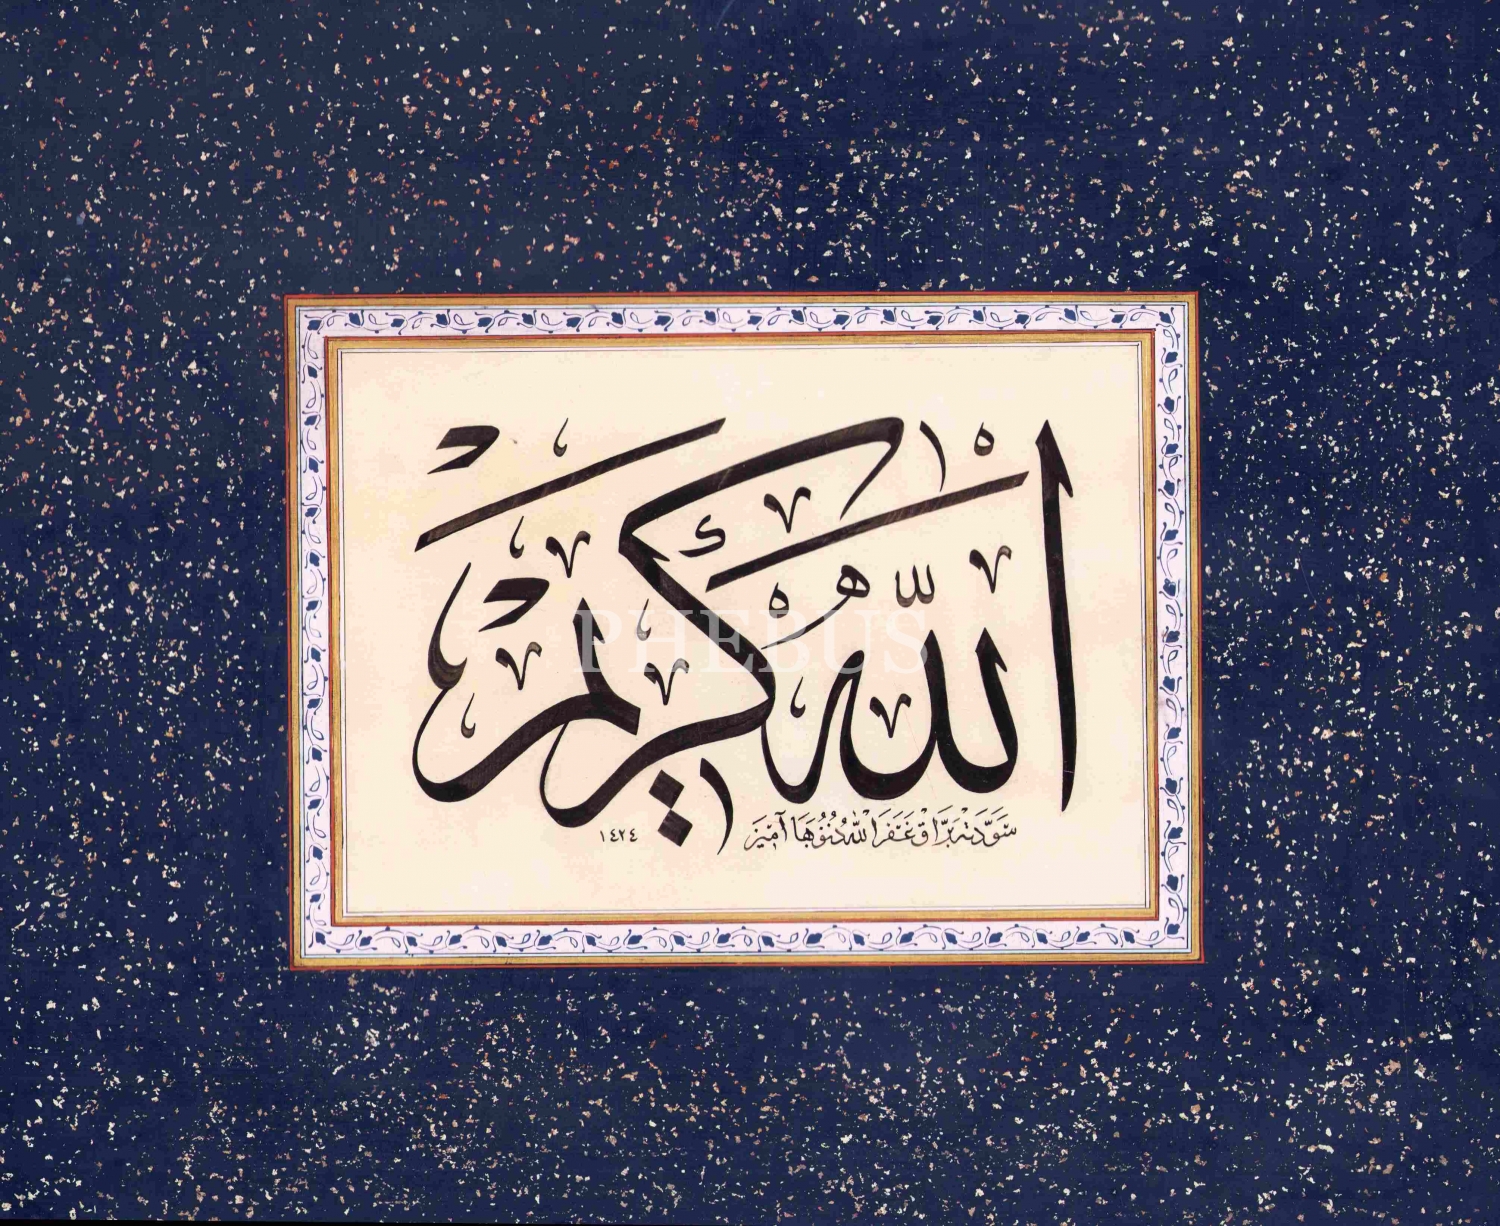 الله كريم
سوّدته براق غفر الله ذنوبها آمين
١٤٢٤
PHEBUS